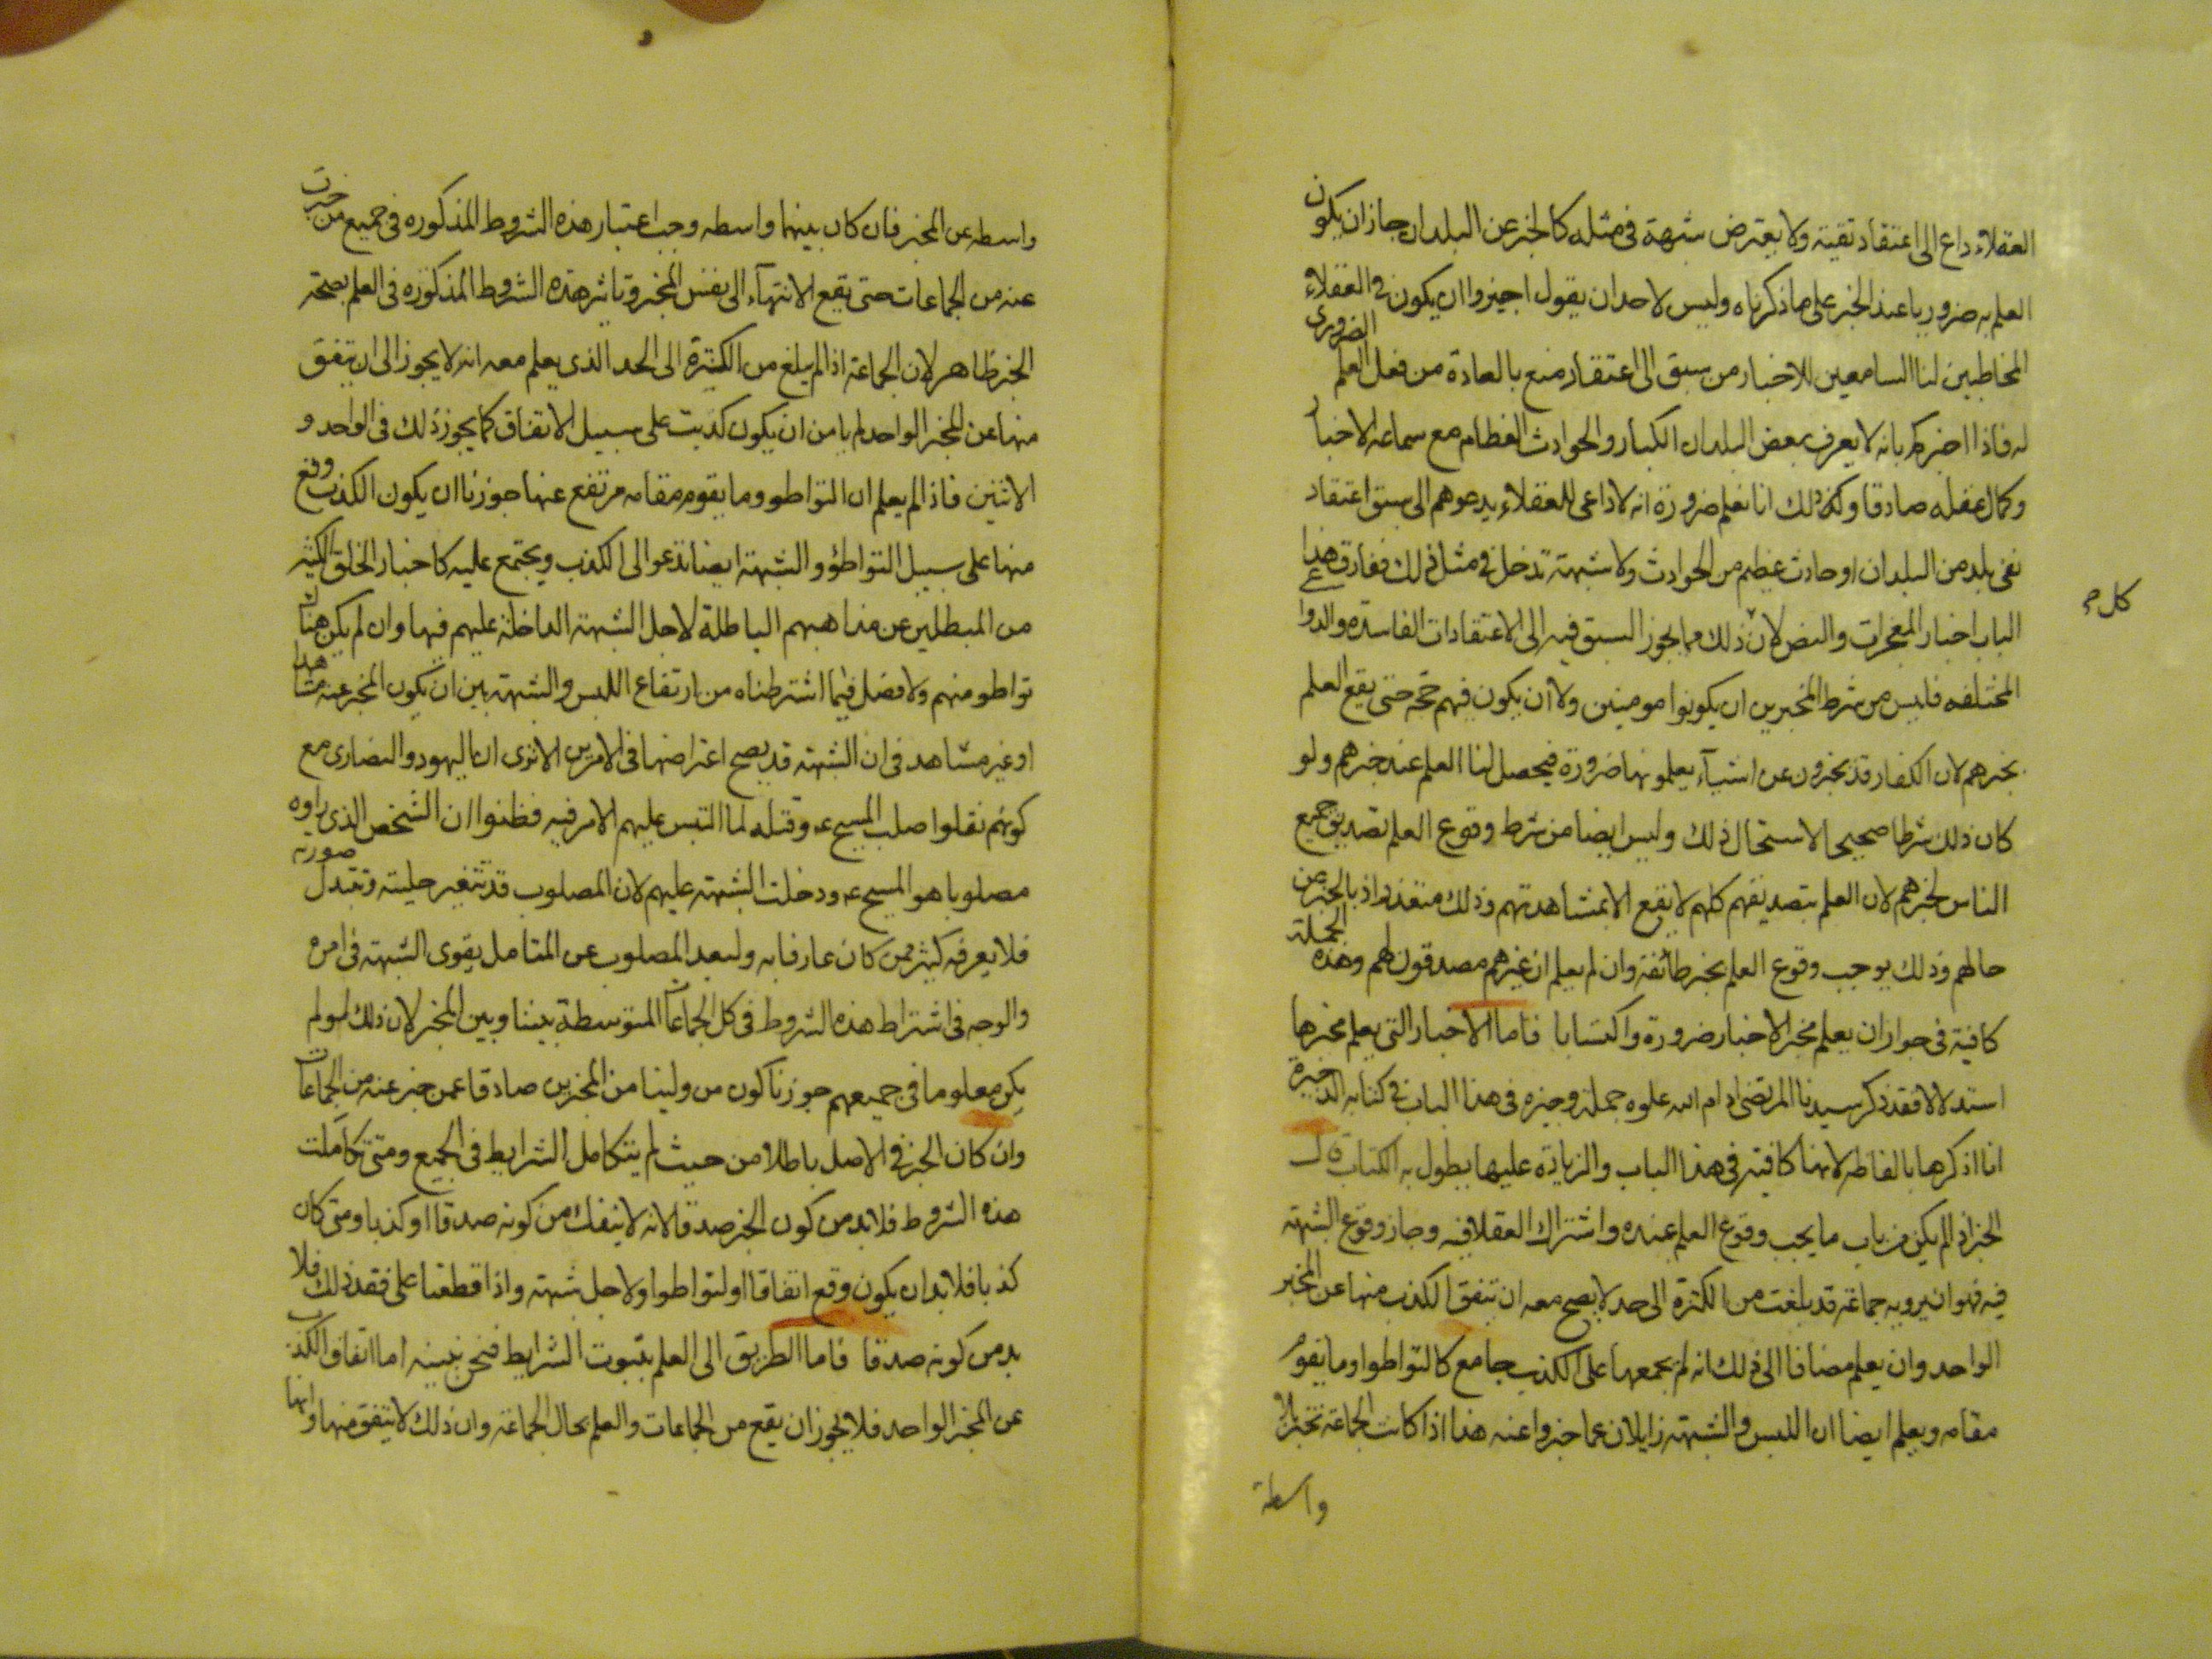 العقلاء داع الى اعتقاد نقيه ولا يعترض شبهة فى مثله كالخبر عن البلدان جاز ان يكون
العلم به ضروريا عند الخبر على ما ذكرناه وليس لاحد ان يقول اجيزوا ان يكون فى العقلاء
المخاطبين لنا السامعين للاخبار من سبق الى اعتقاد منع بالعادة من فعل العلم الضرورى
له فاذا اخبركم بانه لا يعرف بعض البلدان الكبار والحوادث العظام مع سماعه الاخبار
وكمال عقله صادقا وكذلك انا نعلم ضرورة انه لا داعى للعقلاء يدعوهم الى سبق اعتقاد
نفى بلد من البلدان او حادث عظيم من الحوادث ولا شبهة تدخل فى مثل ذلك ففارق هذا
كل م
الباب اخبار المعجزات والنص لان ذلك مما يجوز السبق فيه الى الاعتقادات الفاسده والدوا
المختلفه فليس من شرط المخبرين ان يكونوا مومنين ولا ان يكون فيهم حجه حتى يقع العلم
بخبرهم لان الكفار قد يخبرون عن اشيآء يعلمونها ضرورة فيحصل لنا العلم عند خبرهم ولو
كان ذلك شرطا صحيحا لاستحال ذلك وليس ايضا من شرط وقوع العلم تصديق جميع
الناس لخبرهم لان العلم بتصديقهم كلهم لا يقع الا بمشاهدتهم وذلك متعذر اذ بالخبر عن
حالهم وذلك يوجب وقوع العلم بخبر طائفة وان لم يعلم ان غيرهم مصدقون لهم وهذه الجملة
كافية فى جواز ان يعلم مخبر الاخبار ضرورة واكتسابا فاما الاخبار التى يعلم مخبرها
استدلالا فقد ذكر سيدنا المرتضى ادام الله علوه جملة وجيزه فى هذا الباب فى كتابه الذخيرة
انا اذكرها بالفاظه لانها كافية فى هذا الباب والزيادة عليها يطول به الكتاب
الخبر اذا لم يكن من باب ما يجب وقوع العلم عنده واشتراك العقلا فيه وجاز وقوع الشبهة
فيه فهو ان يرويه جماعة قد بلغت من الكثرة الى حد لا يصح معه ان تتفق الكذب منها عن المخبر
الواحد وان يعلم مضافا الى ذلك انه لم يجمعها على الكذب جامع كالتواطوا وما يقوم
مقامه ويعلم ايضا ان اللبس والشبهة زايلان عما خبروا عنه هذا اذا كانت الجماعة تخبر بلا
واسطة
واسطه عن المخبر فان كان بينهما واسطه وجب اعتبار هذه الشروط المذكوره فى جميع من خبرت
عنه من الجماعات حتى يقع الانتهآء الى نفس المخبر وتاثير هذه الشروط المذكوره فى العلم بصحة
الخبر ظاهر لان الجماعة اذا لم يبلغ من الكثرة الى الحد الذى يعلم معه انه لا يجوز الى ان يتفق
منها عن المخبر الواحد لم يامن ان يكون كذبت على سبيل الاتفاق كما يجوز ذلك فى الواحد و
الاثنين فاذا لم يعلم ان التواطو وما يقوم مقامه مرتفع عنها جوزنا ان يكون الكذب وقع
منها على سبيل التواطؤ والشبهة ايضا تدعو الى الكذب ويجتمع عليه كاخبار الخلق الكثير
من المبطلين عن مذاهبهم الباطلة لاجل الشبهة الداخلة عليهم فيها وان لم يكن هناك
تواطو منهم ولا فصل فيما اشترطناه من ارتفاع اللبس والشبهة بين ان يكون المخبر عنه مشاهدا
او غير مشاهد فى ان الشبهة قد يصح اعتراضها فى الامرين الا ترى ان اليهود والنصارى مع
كونهم نقلوا صلب المسيح ع وقتله لما التبس عليهم الامر فيه فظنوا ان الشخص الذى راوه
مصلوبا هو المسيح ع ودخلت الشبهة عليهم لان المصلوب قد تتغير حليته وتتبدل صورته
فلا يعرفه كثير ممن كان عارفا به ولبعد المصلوب عن المتامل يقوى الشبهة فى امره
والوجه فى اشتراط هذه الشروط فى كل الجماعات المتوسطة بيننا وبين المخبر لان ذلك لو لم
يكن معلوما فى جميعهم جوزنا كون من ولينا من المخبرين صادقا عمن خبر عنه من الجماعات
وان كان الخبر فى الاصل باطلا من حيث لم يتكامل الشرايط فى الجميع ومتى تكاملت
هذه الشروط فلا بد من كون الخبر صدقا لانه لا ينفك من كونه صدقا او كذبا ومتى كان
كذبا فلا بد ان يكون وقع اتفاقا او لتواطوا ولاجل شبهة واذا قطعنا على فقد ذلك فلا
بد من كونه صدقا فاما الطريق الى العلم بثبوت الشرايط فنحن نبينه اما اتفاق الكذب
عن المخبر الواحد فلا يجوز ان يقع من الجماعات والعلم بحال الجماعة وان ذلك لا يتفق منها وانها